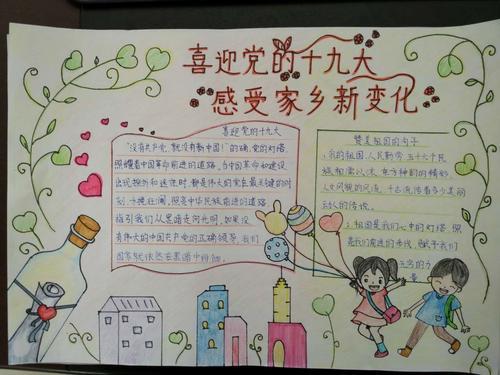 喜迎党的十九大
感受家乡新变化
喜迎党的十九大
"没有共产党,就没有新中国!"的确,党的灯塔
照耀着中国革命前进的道路。当中国革命和建设
出现挫折和迷茫时,都是伟大的党在最关键的时
刻,力挽狂澜,照亮中华民族前进的道路。
指引我们从黑暗走向光明,如果没
有伟大的中国共产党的正确领导,我们
国家就依然在黑暗中徘徊。
赞美祖国的句子
1.我的祖国,人民勤劳,五十六个民
族相濡以沫,东方神韵的精妙,
人文风貌的风流,千古流传着多少美丽
动人的传说。
2.祖国是我们心中的灯塔,照
亮我们前进的步伐,赋予我们
无穷的力
量